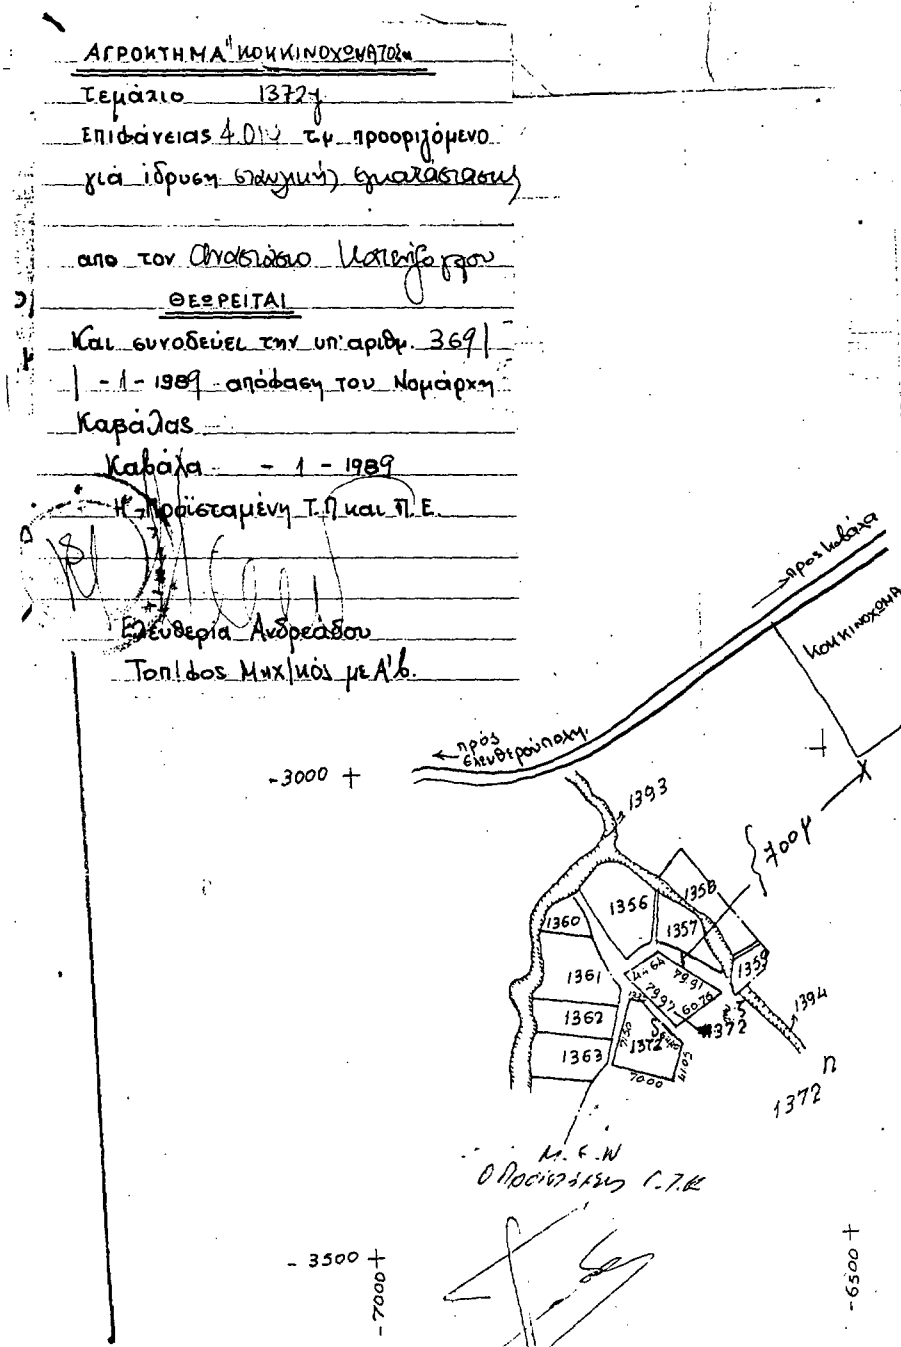 ΑΓΡΟΚΤΗΜΑ "ΚΟΚΚΙΝΟΧΩΜΑΤΟΣ"
Τεμάχιο 1372γ
Επιφάνειας τ.μ. προοριζόμενο
για ίδρυση σταυλικής εγκατάστασης
απο τον Αναστάσιο
ΘΕΩΡΕΙΤΑΙ
Και συνοδεύει την υπ'αριθμ. 369/
-1-1989 απόφαση του Νομάρχη
Καβάλας
Καβάλα -1-1989
Η Προϊσταμένη Τ.Π και Π.Ε.
Ελευθερία Ανδρεάδου
Τοπ/φος Μηχ/κός με Α'β.
προς Καβάλα
ΚΟΚΚΙΝΟΧΩΜΑ
προς
Ελευθερούπολη
-3000
1393
700μ
1358
1356
1357
1360
1359
1361
44.64
79.91
79.97
60.76
1394
1362
1372
1363
71.50
1372
41.05
70.00
1372
Μ.Ε.Ν
-3500
-7000
-6500